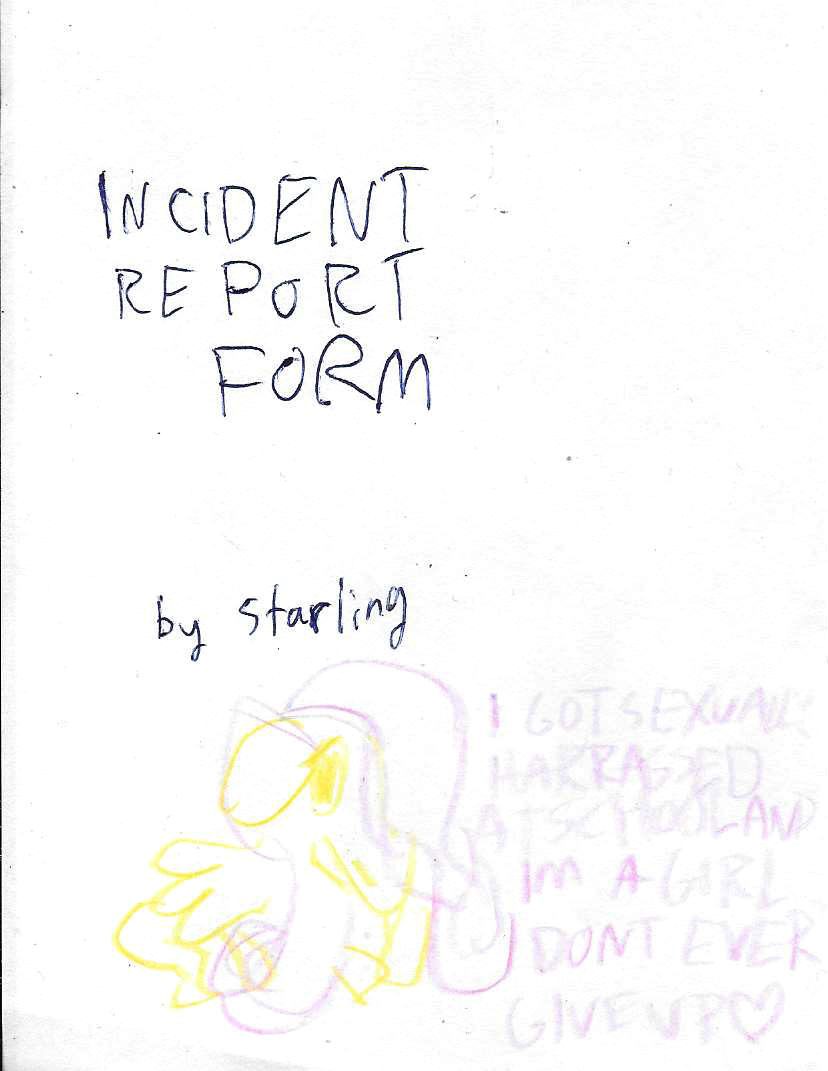 INCIDENT
REPORT
FORM
by starling
I GOT SEXUALLY
HARRASSED
AT SCHOOL AND
IM A GIRL
DONT EVER
GIVE UP♡